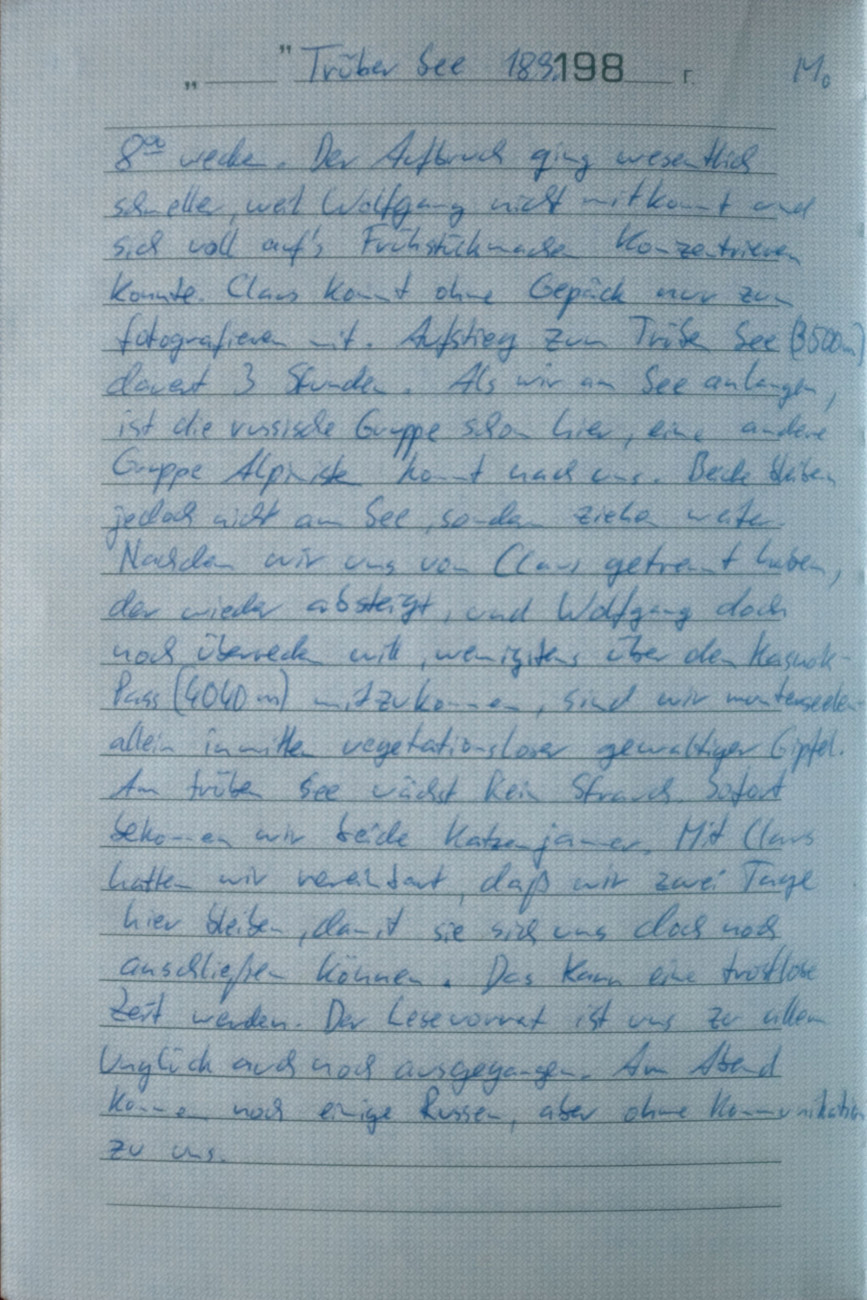 „ " Trüber See 18.9.198 г. Mo
8⁰⁰ wecken. Der Aufbruch ging wesentlich
schneller, weil Wolfgang nicht mitkommt und
sich voll auf's Frühstückmachen konzentrieren
konnte. Claus kommt ohne Gepäck nur zum
fotografieren mit. Aufstieg zum Trüben See (3500m)
dauert 3 Stunden. Als wir am See anlangen,
ist die russische Gruppe schon hier, eine andere
Gruppe Alpinisten kommt nach uns. Beide bleiben
jedoch nicht am See, sondern ziehen weiter.
Nachdem wir uns von Claus getrennt haben,
der wieder absteigt, und Wolfgang doch
noch überreden will, wenigstens über den Kasnok-
Pass (4040 m) mitzukommen, sind wir mutterseelen-
allein inmitten vegetationsloser gewaltiger Gipfel.
Am trüben See wächst kein Strauch. Sofort
bekommen wir beide Katzenjammer. Mit Claus
hatten wir vereinbart, daß wir zwei Tage
hier bleiben, damit sie sich uns doch noch
anschließen können. Das kann eine trostlose
Zeit werden. Der Lesevorrat ist uns zu allem
Unglück auch noch ausgegangen. Am Abend
kommen noch einige Russen, aber ohne Kommunikation
zu uns.